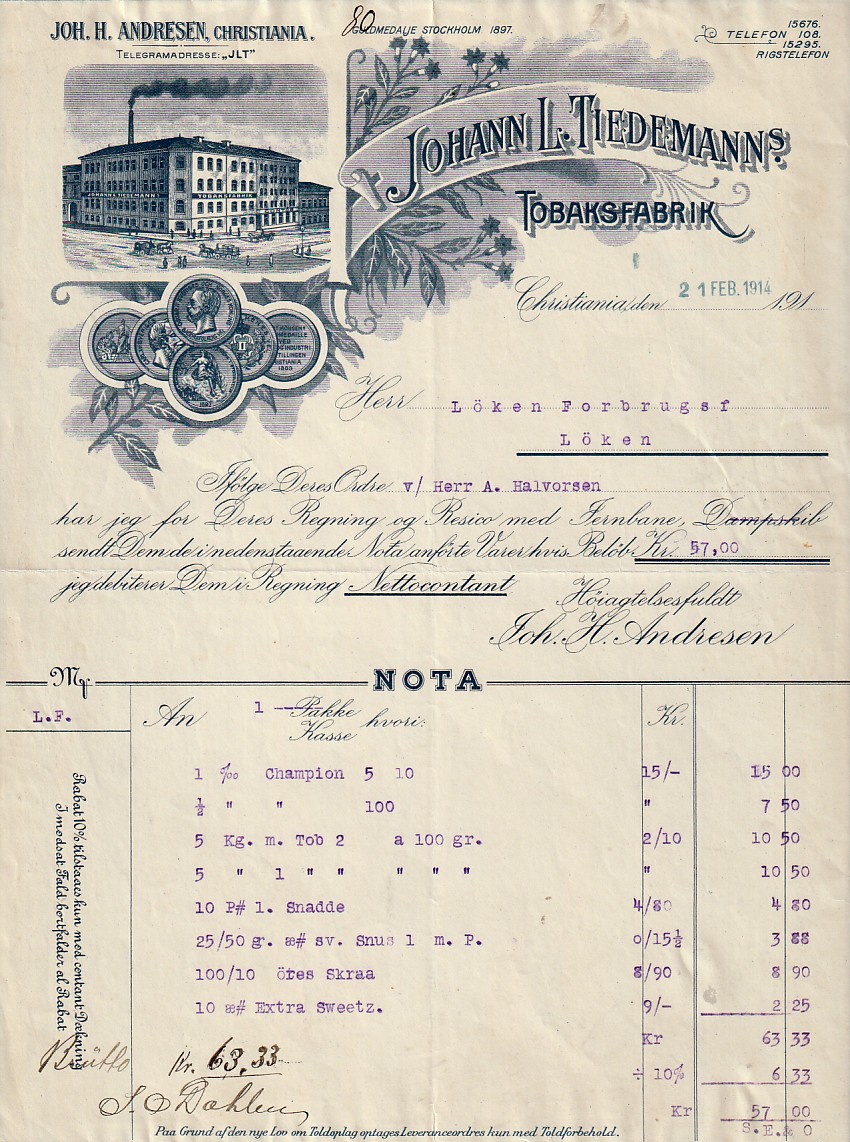 80
JOH. H. ANDRESEN, CHRISTIANIA.
TELEGRAMADRESSE: „JLT"
GULDMEDALJE STOCKHOLM 1897.
15676.
TELEFON 108.
15295.
RIGSTELEFON
JOHANN L. TIEDEMANNS
TOBAKSFABRIK
JOHANN L. TIEDEMANN TOBAKSFABRIK
Christiania, den 21 FEB. 1914 191
Herr Löken Forbrugsf
Löken
Ifölge Deres Ordre v/ Herr A. Halvorsen
har jeg for Deres Regning og Resico med Jernbane, Dampskib
sendt Dem de i nedenstaaende Nota anförte Varer hvis Belöb Kr. 57,00
jeg debiterer Dem i Regning Nettocontant
Höiagtelsesfuldt
Joh. H. Andresen
Mrk. NOTA
L.F.
An 1 Pakke
Kasse hvori: Kr.
1 ‰ Champion 5 10 15/- 15 00
½ " " 100 " 7 50
5 Kg. m. Tob 2 a 100 gr. 2/10 10 50
5 " 1 " " " " " " 10 50
10 P# 1. Snadde 4/80 4 80
25/50 gr. æ# sv. Snus 1 m. P. 0/15½ 3 88
100/10 öres Skraa 8/90 8 90
10 æ# Extra Sweetz. 9/- 2 25
Kr 63 33
÷ 10% 6 33
Kr 57 00
S.E.& O
Rabat 10% tilstaaes kun mod contant Dækning
I modsat Fald bortfalder al Rabat
Brutto Kr. 63,33
Paa Grund af den nye Lov om Toldoplag optages Leveranceordres kun med Toldforbehold.